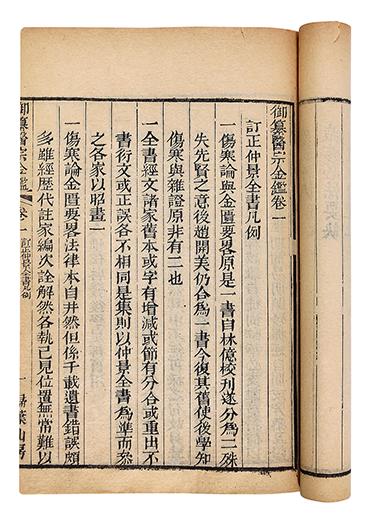 御纂醫宗金鑑卷一
訂正仲景全書凡例
一傷寒論與金匱要畧原是一書自林億校刋遂分為二殊
失先賢之意後趙開美仍合為一書今復其舊使後學知
傷寒與雜證原非有二也
一全書經文諸家舊本或字有增減或節有分合或重出不
書衍文或正誤各不相同是集則以仲景全書為準而參
之各家以昭畫一
一傷寒論金匱要畧法律本自井然但係千載遺書錯誤頗
多雖經歷代註家編次詮解然各執己見位置無常難以
御纂醫宗金鑑 卷一 訂正仲景全書凡例 一 掃葉山房